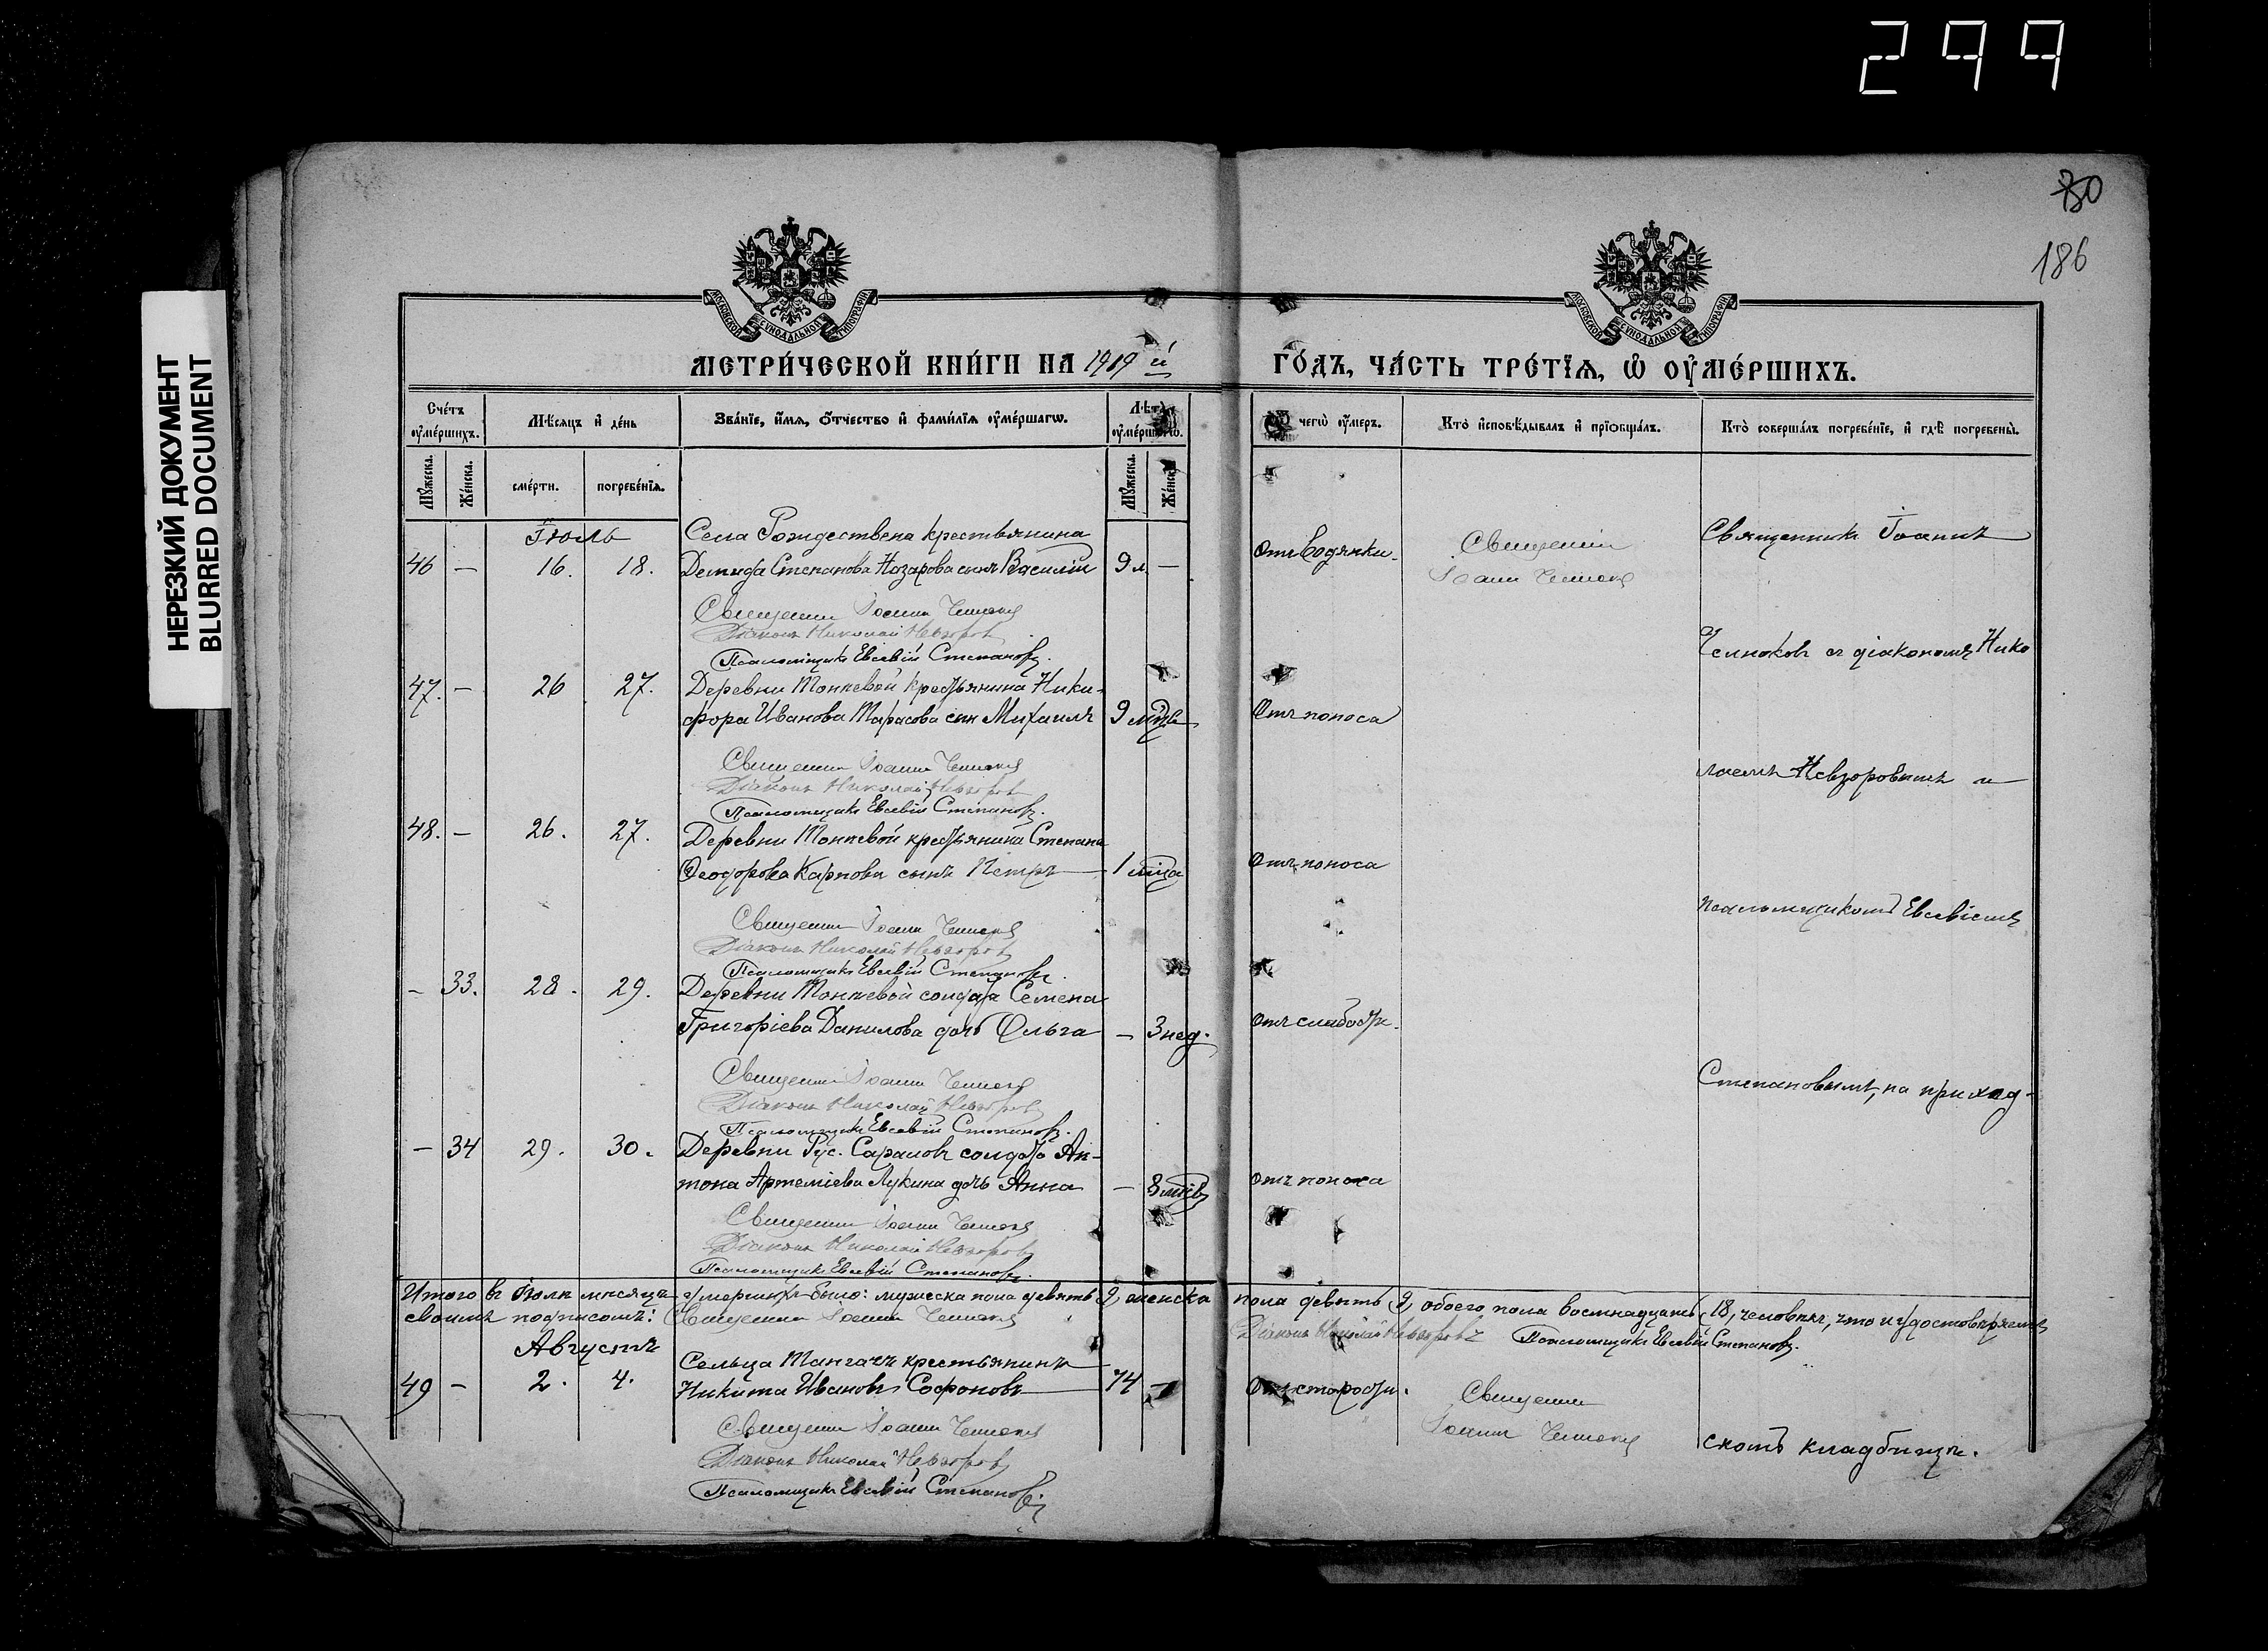 299
НЕРЕЗКИЙ ДОКУМЕНТ
BLURRED DOCUMENT
80
186
МОСКОВСКОЙ СѴНОДАЛЬНОЙ ТИПОГРАФІИ
МОСКОВСКОЙ СѴНОДАЛЬНОЙ ТИПОГРАФІИ
МЕТРИ́ЧЕСКОЙ КНИ́ГИ НА 1909 й
ГО́ДЪ, ЧА́СТЬ ТРЕ́ТЇѦ, Ѡ҆ ОУ҆МЕ́РШИХЪ.
Сче́тъ оу҆ме́ршихъ.
Мѣ́сѧцъ и҆ де́нь
Зва́нїе, и҆́мѧ, ѻ҆́тчество и҆ фами́лїѧ оу҆ме́ршагѡ.
Лѣ́та оу҆ме́ршагѡ.
чегѡ̀ оу҆́меръ.
Кто̀ и҆сповѣ́дывалъ и҆ прїѻбща́лъ.
Кто̀ соверша́лъ погребе́нїе, и҆ гдѣ̀ погребены̀.
Мꙋ́жеска.
Же́нска.
сме́рти.
погребе́нїѧ.
Мꙋ́жеска.
Же́нска.
Іюль
Села Рождествена крестьянина
46 — 16. 18. Демида Степанова Назарова сынъ Василій 9 л. — Отъ водянки.
Священникъ
Іоаннъ Челноковъ
Священникъ Іоаннъ
Священникъ Іоаннъ Челноковъ
Діаконъ Николай Невзоровъ
Псаломщикъ Евсевій Степановъ.
Челноковъ съ діакономъ Нико
47. — 26 27. Деревни Монпевой крестьянина Ники-
фора Иванова Тарасова сын Михаилъ 9 мцвъ Отъ поноса
Священникъ Іоаннъ Челноковъ
Діаконъ Николай Невзоровъ
Псаломщикъ Евсевій Степановъ.
лаемъ Невзоровымъ и
48. — 26. 27. Деревни Монпевой крестьянина Степана
Ѳеодорова Карпова сынъ Петръ 1 мца Отъ поноса
Священникъ Іоаннъ Челноковъ
Діаконъ Николай Невзоровъ
Псаломщикъ Евсевій Степановъ.
псаломщикомъ Евсевіемъ
— 33. 28. 29. Деревни Монпевой солдата Семена
Григоріева Данилова дочь Ольга — 3 нед. Отъ слабости.
Священникъ Іоаннъ Челноковъ
Діаконъ Николай Невзоровъ
Псаломщикъ Евсевій Степановъ.
Степановымъ, на приход-
— 34 29. 30. Деревни Рус. Сараповъ солдата Ан-
тона Артеміева Лукина дочь Анна — 8 мцвъ Отъ поноса
Священникъ Іоаннъ Челноковъ
Діаконъ Николай Невзоровъ
Псаломщикъ Евсевій Степановъ.
Итого въ Іюлѣ мѣсяцѣ умершихъ было: мужеска пола девять 9, женска пола девять 9, обоего пола восемнадцать 18, человѣкъ, что и удостовѣряемъ
своимъ подписомъ: Священникъ Іоаннъ Челноковъ Діаконъ Николай Невзоровъ Псаломщикъ Евсевій Степановъ.
Августъ
Сельца Мангачъ крестьянинъ
49 — 2. 4. Никита Ивановъ Софоновъ 74 — Отъ старости.
Священникъ
Іоаннъ Челноковъ
скомъ кладбищѣ.
Священникъ Іоаннъ Челноковъ
Діаконъ Николай Невзоровъ
Псаломщикъ Евсевій Степановъ